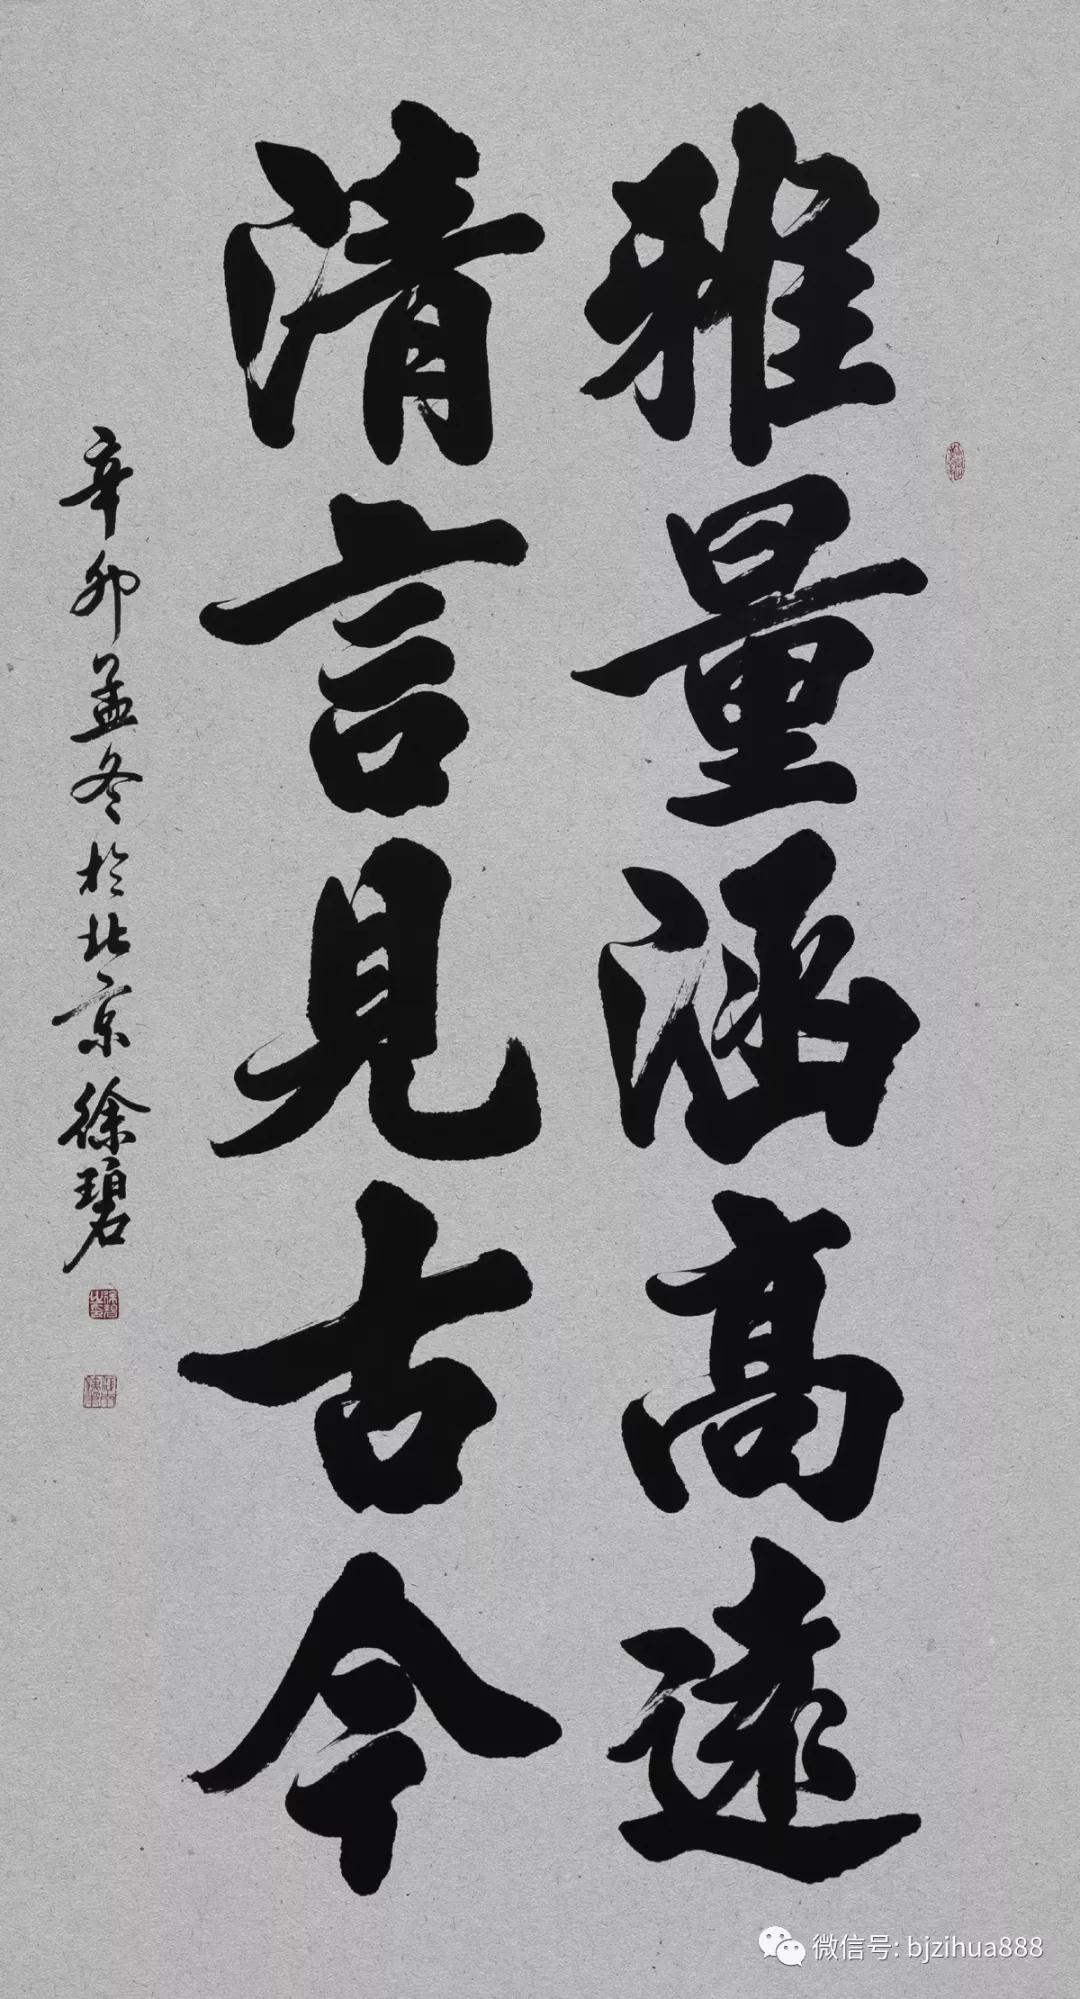 雅量涵高遠
清言見古今
辛卯孟冬於北京徐碧
微信号: bjzihua888